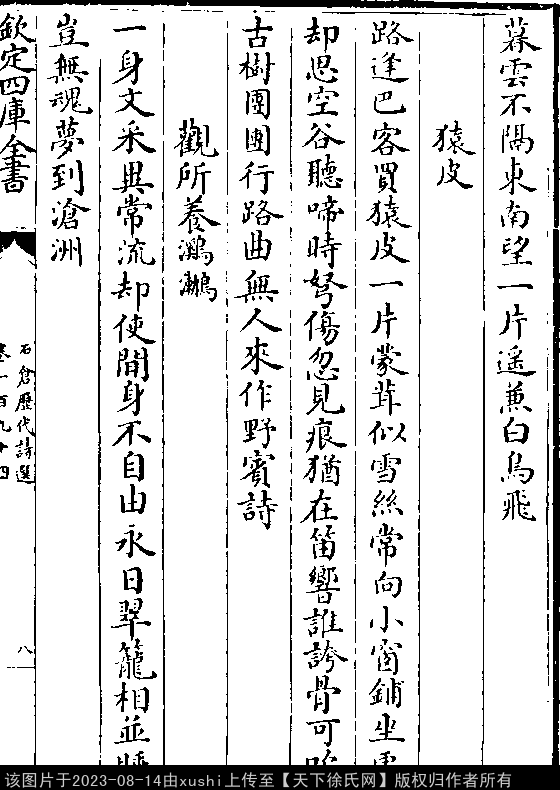 暮雲不隔東南望一片遥兼白鳥飛
猿皮
路逢巴客買猿皮一片蒙茸似雪絲常向小窗鋪坐
却思空谷聽啼時弩傷忽見痕猶在笛響誰誇骨可
古樹團團行路曲無人來作野賓詩
觀所養鸂鶒
一身文采異常流却使閒身不自由永日翠籠相並
豈無魂夢到滄洲
欽定四庫全書
石倉歷代詩選
卷一百九十四
八
该图片于2023-08-14由xushi上传至【天下徐氏网】版权归作者所有